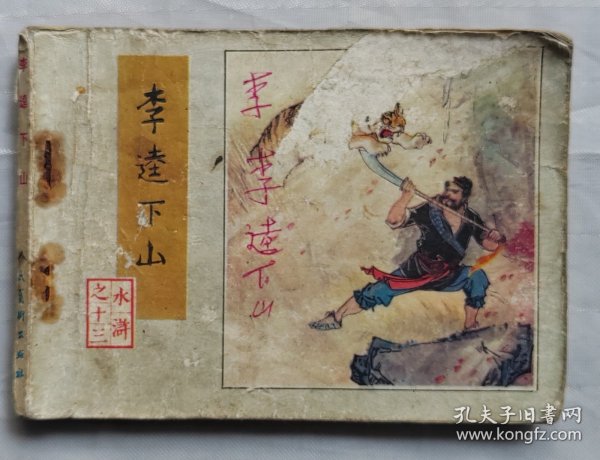 李逵下山
人民美術出版社
李逵下山
水滸
之十三
李
李逵下山
孔夫子旧書网
www.kongfz.com